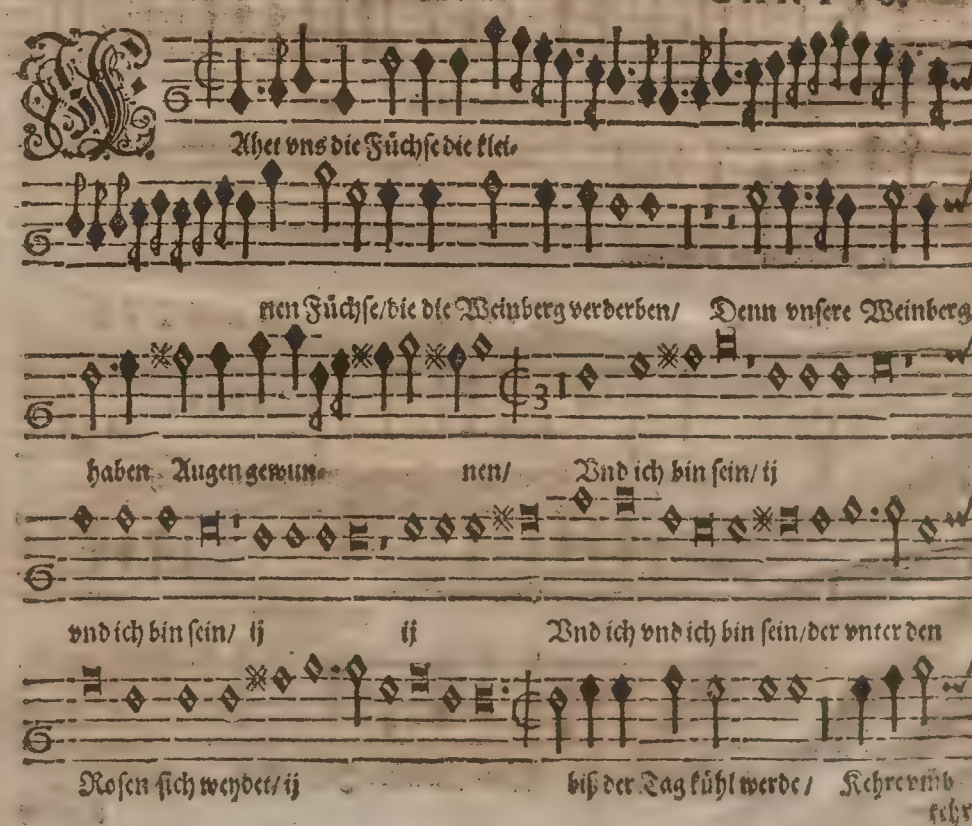 FAhet vns die Füchse die klei-
nen Füchse/die die Weinberg verderben/ Denn vnsere Weinberg
haben Augen gewun- nen/ Vnd ich bin sein/ ij
vnd ich bin sein/ ij ij Vnd ich vnd ich bin sein/der vnter den
Rosen sich weydet/ ij biß der Tag kühl werde/ Kehre vmb
kehr